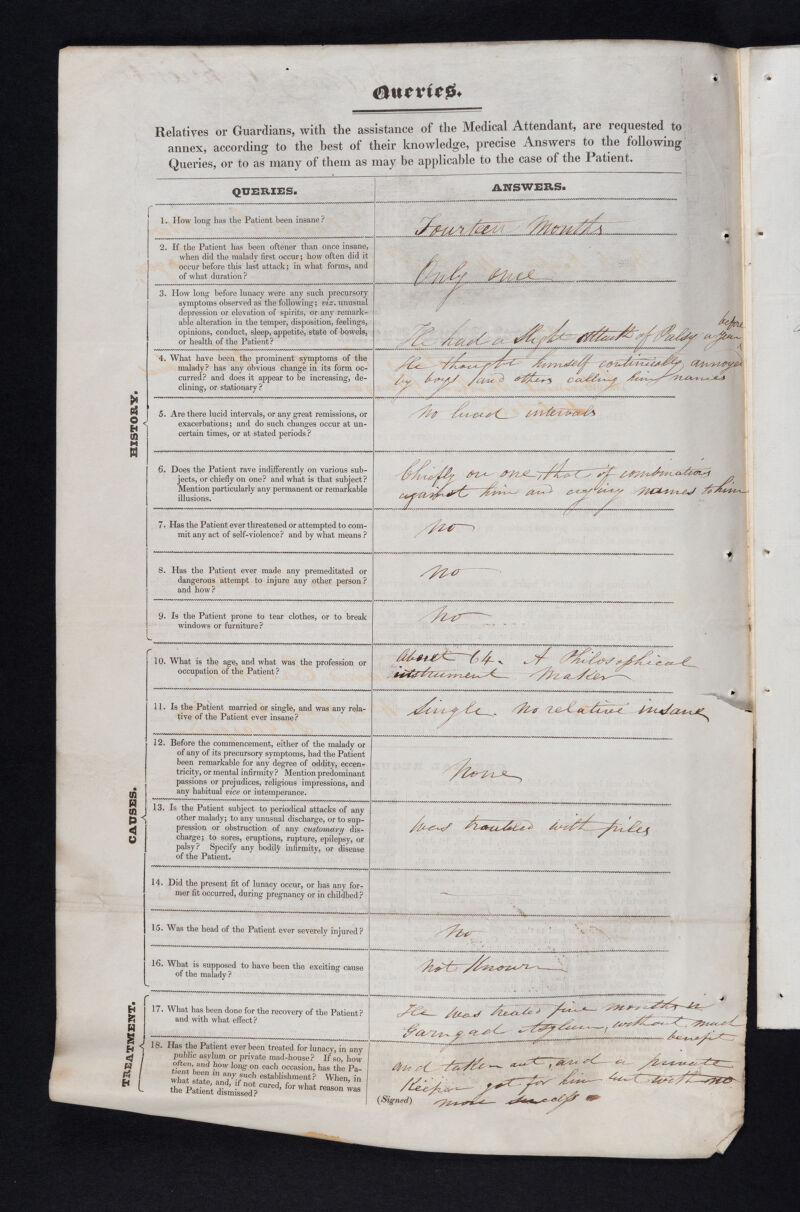 Queries.
Relatives or Guardians, with the assistance of the Medical Attendant, are requested to
annex, according to the best of their knowledge, precise Answers to the following
Queries, or to as many of them as may be applicable to the case of the Patient.
QUERIES.
ANSWERS.
HISTORY.
1. How long has the Patient been insane?
Fourteen Months
2. If the Patient has been oftener than once insane,
when did the malady first occur; how often did it
occur before this last attack; in what forms, and
of what duration?
Only once
3. How long before lunacy were any such precursory
symptoms observed as the following; viz. unusual
depression or elevation of spirits, or any remark-
able alteration in the temper, disposition, feelings,
opinions, conduct, sleep, appetite, state of bowels,
or health of the Patient?
He had a slight attack of Palsy a year
before
4. What have been the prominent symptoms of the
malady? has any obvious change in its form oc-
curred? and does it appear to be increasing, de-
clining, or stationary?
He thought himself continually annoyed
by boys and others calling him names
5. Are there lucid intervals, or any great remissions, or
exacerbations; and do such changes occur at un-
certain times, or at stated periods?
No lucid intervals
6. Does the Patient rave indifferently on various sub-
jects, or chiefly on one? and what is that subject?
Mention particularly any permanent or remarkable
illusions.
Chiefly on one, that of combinations
against him and crying names to him
7. Has the Patient ever threatened or attempted to com-
mit any act of self-violence? and by what means?
No
8. Has the Patient ever made any premeditated or
dangerous attempt to injure any other person?
and how?
No
9. Is the Patient prone to tear clothes, or to break
windows or furniture?
No
CAUSES.
10. What is the age, and what was the profession or
occupation of the Patient?
About 64. A Philosophical
instrument Maker
11. Is the Patient married or single, and was any rela-
tive of the Patient ever insane?
Single. No relative insane
12. Before the commencement, either of the malady or
of any of its precursory symptoms, had the Patient
been remarkable for any degree of oddity, eccen-
tricity, or mental infirmity? Mention predominant
passions or prejudices, religious impressions, and
any habitual vice or intemperance.
None
13. Is the Patient subject to periodical attacks of any
other malady; to any unusual discharge, or to sup-
pression or obstruction of any customary dis-
charge; to sores, eruptions, rupture, epilepsy, or
palsy? Specify any bodily infirmity, or disease
of the Patient.
Was troubled with piles
14. Did the present fit of lunacy occur, or has any for-
mer fit occurred, during pregnancy or in childbed?
—
15. Was the head of the Patient ever severely injured?
No
16. What is supposed to have been the exciting cause
of the malady?
Not Known
TREATMENT.
17. What has been done for the recovery of the Patient?
and with what effect?
He was treated five months in
Garngad Asylum, without much
benefit
18. Has the Patient ever been treated for lunacy, in any
public asylum or private mad-house? If so, how
often, and how long on each occasion, has the Pa-
tient been in any such establishment? When, in
what state, and, if not cured, for what reason was
the Patient dismissed?
and taken out, and a private
Keeper got for him but with no
(Signed) more success